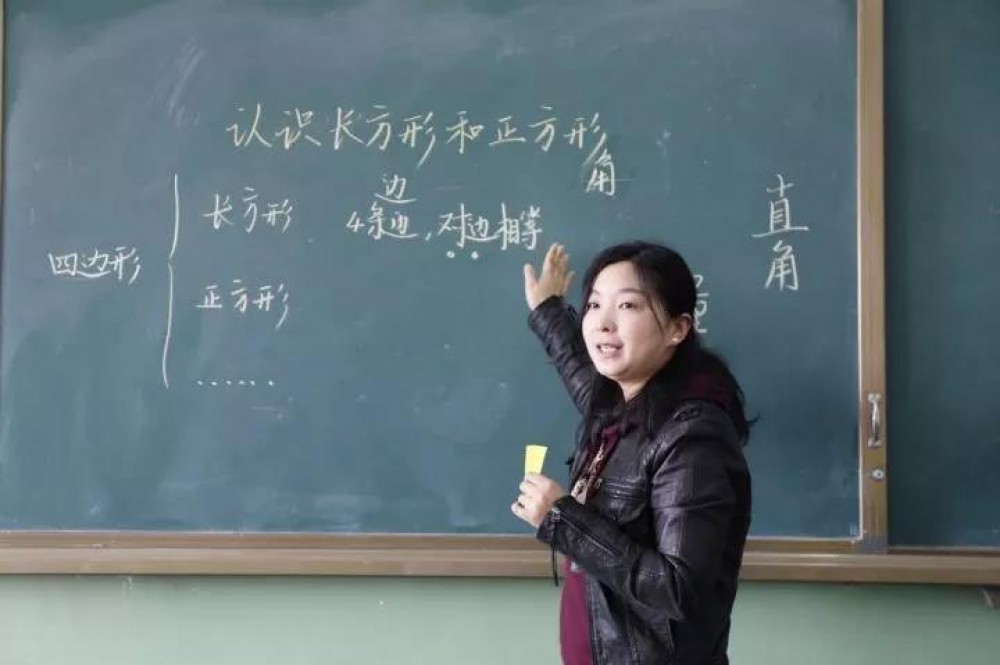 认识长方形和正方形
边 角
长方形 4条边,对边相等
四边形
正方形
……
直角